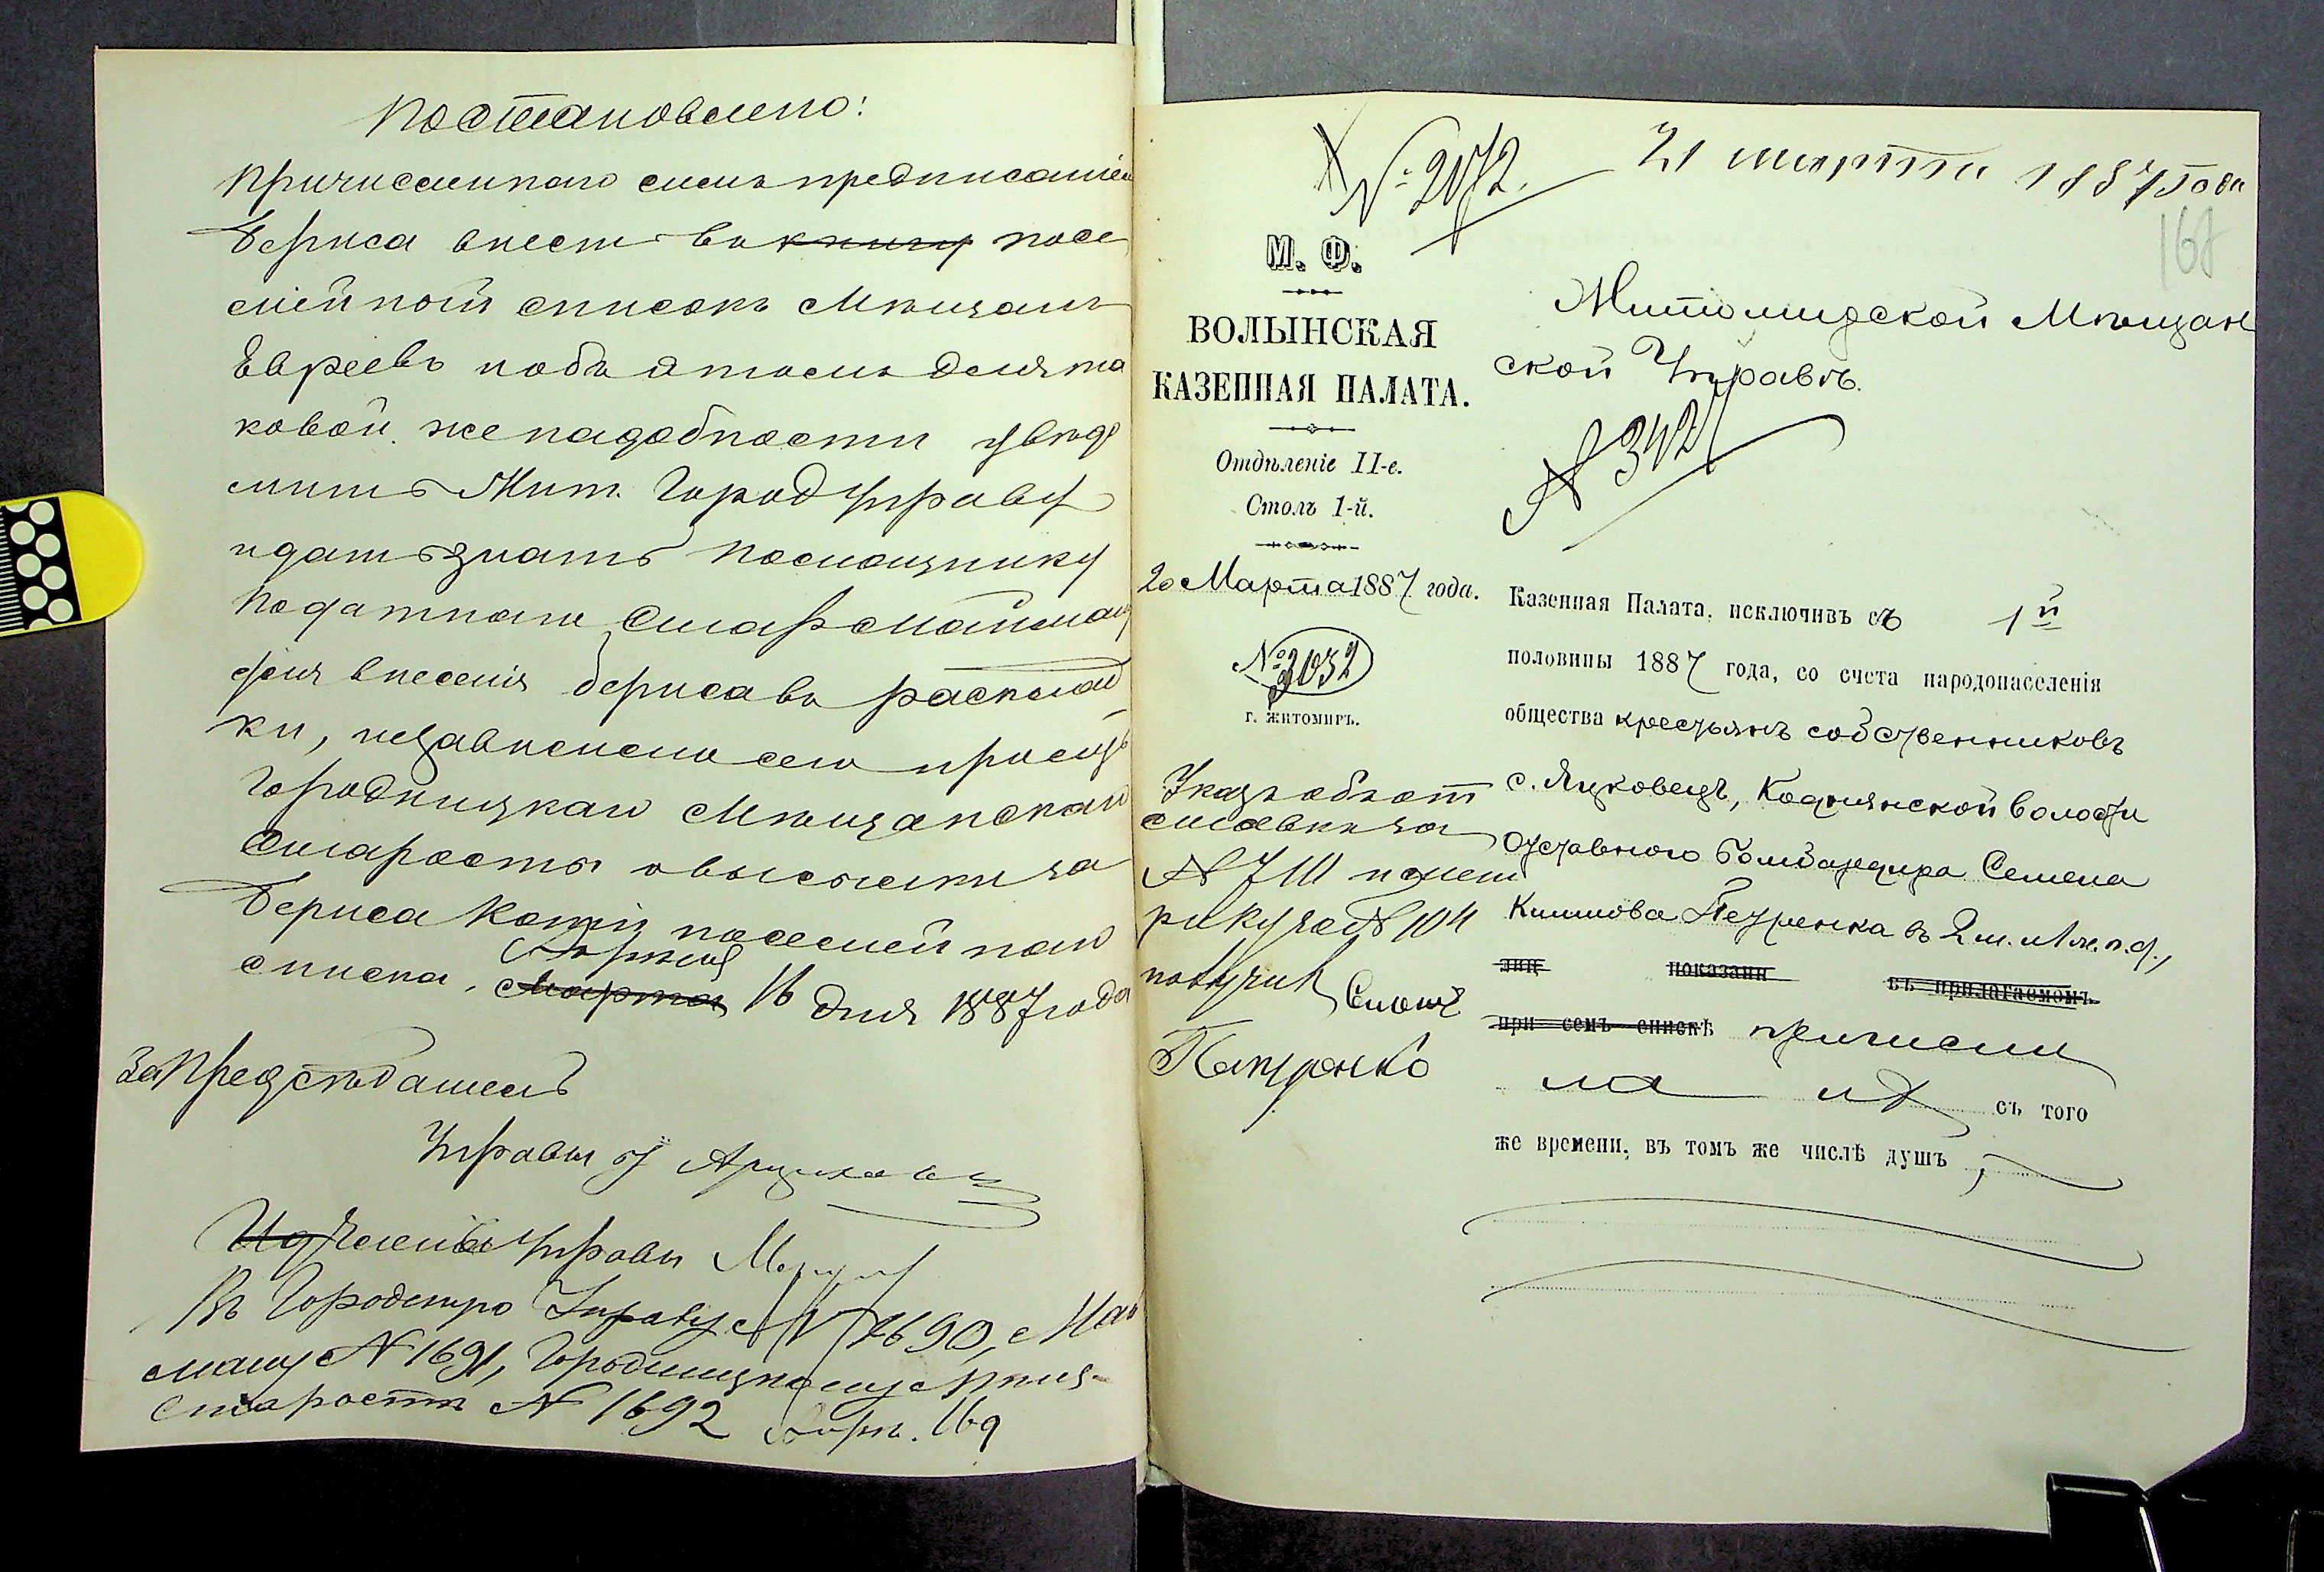 Постановлено:
Причисленнаго симъ предписаніемъ
Бериса внести въ книгу посе
мейный списокъ Мѣщанъ
Евреевъ и объ этомъ для та
ковой же надобности увѣдо
мить Жит. Город Управу
и дать знать помощнику
Податнаго Стар Майману
для внесенія Бериса въ раскла
ки, независимо сего просить
Городницкаго Мѣщанскаго
Старосты о высылки на
Бериса копіи посемейнаго
списка. Апрѣля
Марта 16 дня 1887 года
За Предсѣдателя
Управы
Членъ Управы
Въ Городскую Управу № 1690, Май
ману № 1691, Городницкому Мѣщ.
Старостѣ № 1692 Апрѣ. 16 д
№ 2072. 21 марта 1887 года
167
М. Ф.
ВОЛЫНСКАЯ
КАЗЕННАЯ ПАЛАТА.
Отдѣленіе II-е.
Столъ 1-й.
20 Марта 1887 года.
№ 2032
г. Житомиръ.
Указъ объ от
ставки за
№ 7111 и
рику за № 104
получилъ Семенъ
Петренко
Житомирской Мѣщан
ской Управѣ.
№ 342
Казенная Палата, исключивъ съ 1й
половины 1887 года, со счета народонаселенія
общества крестьянъ собственниковъ
с. Яцковецъ, Коднянской волости
отставного бомбардира Семена
Климова Петренка въ 2 м. и 1 ж. п. д.,
лиц показанн въ прилагаемомъ
при семъ спискѣ причисли
ла ихъ съ того
же времени, въ томъ же числѣ душъ,